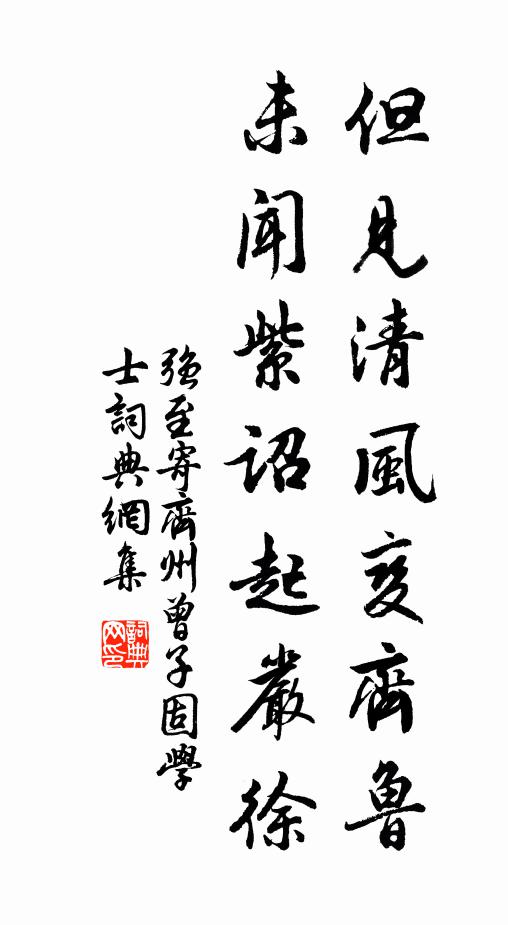 但見清風変齊魯
未聞紫詔起嚴徐
強至寄齊州曾子固學
士詞典網集
詞典网印